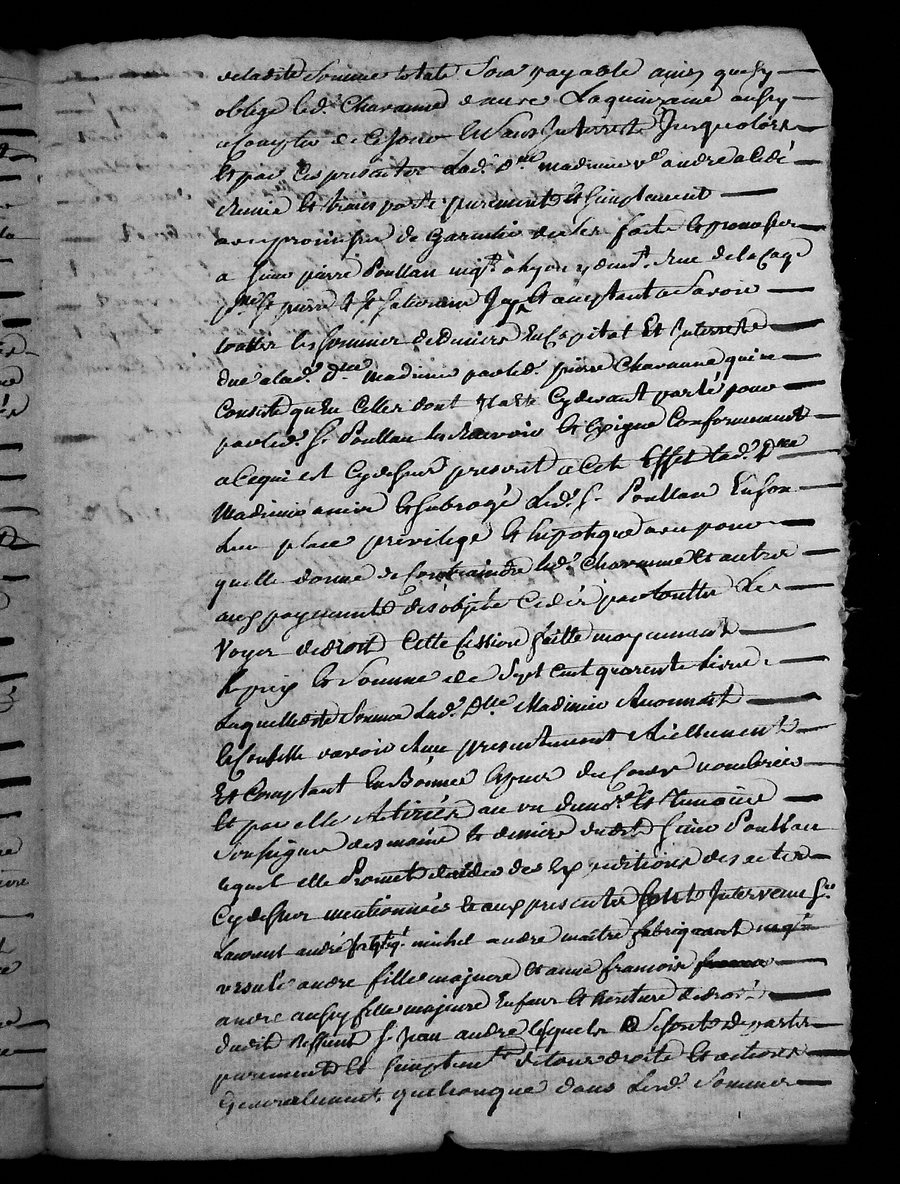 deladite Somme totale Sera payable ainsy que sy
oblige led. Chavanne dans La quinzaine aussy
a Compter de Ce jour Et Sans Interrest Jusqualors
Et par Ces presentes Lad. dme madinier ve andré a Cedé
Remis Et transporté purement Et Simplement
avec promesse de Garantir de ses faits Et promesses
a Sieur pierre Poullau negt a Lyon y demt. Rue de la Cage
psse St pierre Et St Saturnin Icy Et acceptant a Savoir
touttes les Sommes de Deniers En Capital Et Interrests
due a lad. dme madinier par led. pierre Chavanne qui ne
Consiste qu'En Celles dont Il a Eté Cydevant parlé pour
par led. Sr Poullau les Recevoir Et Exiger Conformement
a Ce qui est Cydessus prescrit a Cet Effet lad. Dme
Madinier a mis Et Subrogé Led. Sr Poullau En Son
Lieu place privilege Et hipoteque avec pouvoir
quelle donne de Contraindre led. Chavanne Et autres
aux payements des objets Cedés par touttes Les
Voyes de droit Cette Cession faitte moyennant
Le prix Et Somme de Sept Cent quarente livres
Laquelle ditte Somme Lad. Dlle Madinier
Confesse avoir Eue presentement Réellement
Et Comptant En Bonnes Especes du Cours nombrées
Et par elle Retirées au vu du no.re Et temoins
Soussignés des mains Et deniers dudit Sieur Poullau
auquel elle Promet daider des Expeditions des actes
Cydessus mentionnés Et aux presentes Sont Intervenus Sr
Laurent andré michel andre maître fabriquant
ursule andre fille majeure Et anne francoise
andre aussy fille majeure Enfans Et heritiers de droit
dudit deffunt Sr Jean andre lesquels Se sont departis
purement Et Simplemt. de tous droits Et actions
Generalement quelconque dans Lesd. Sommes